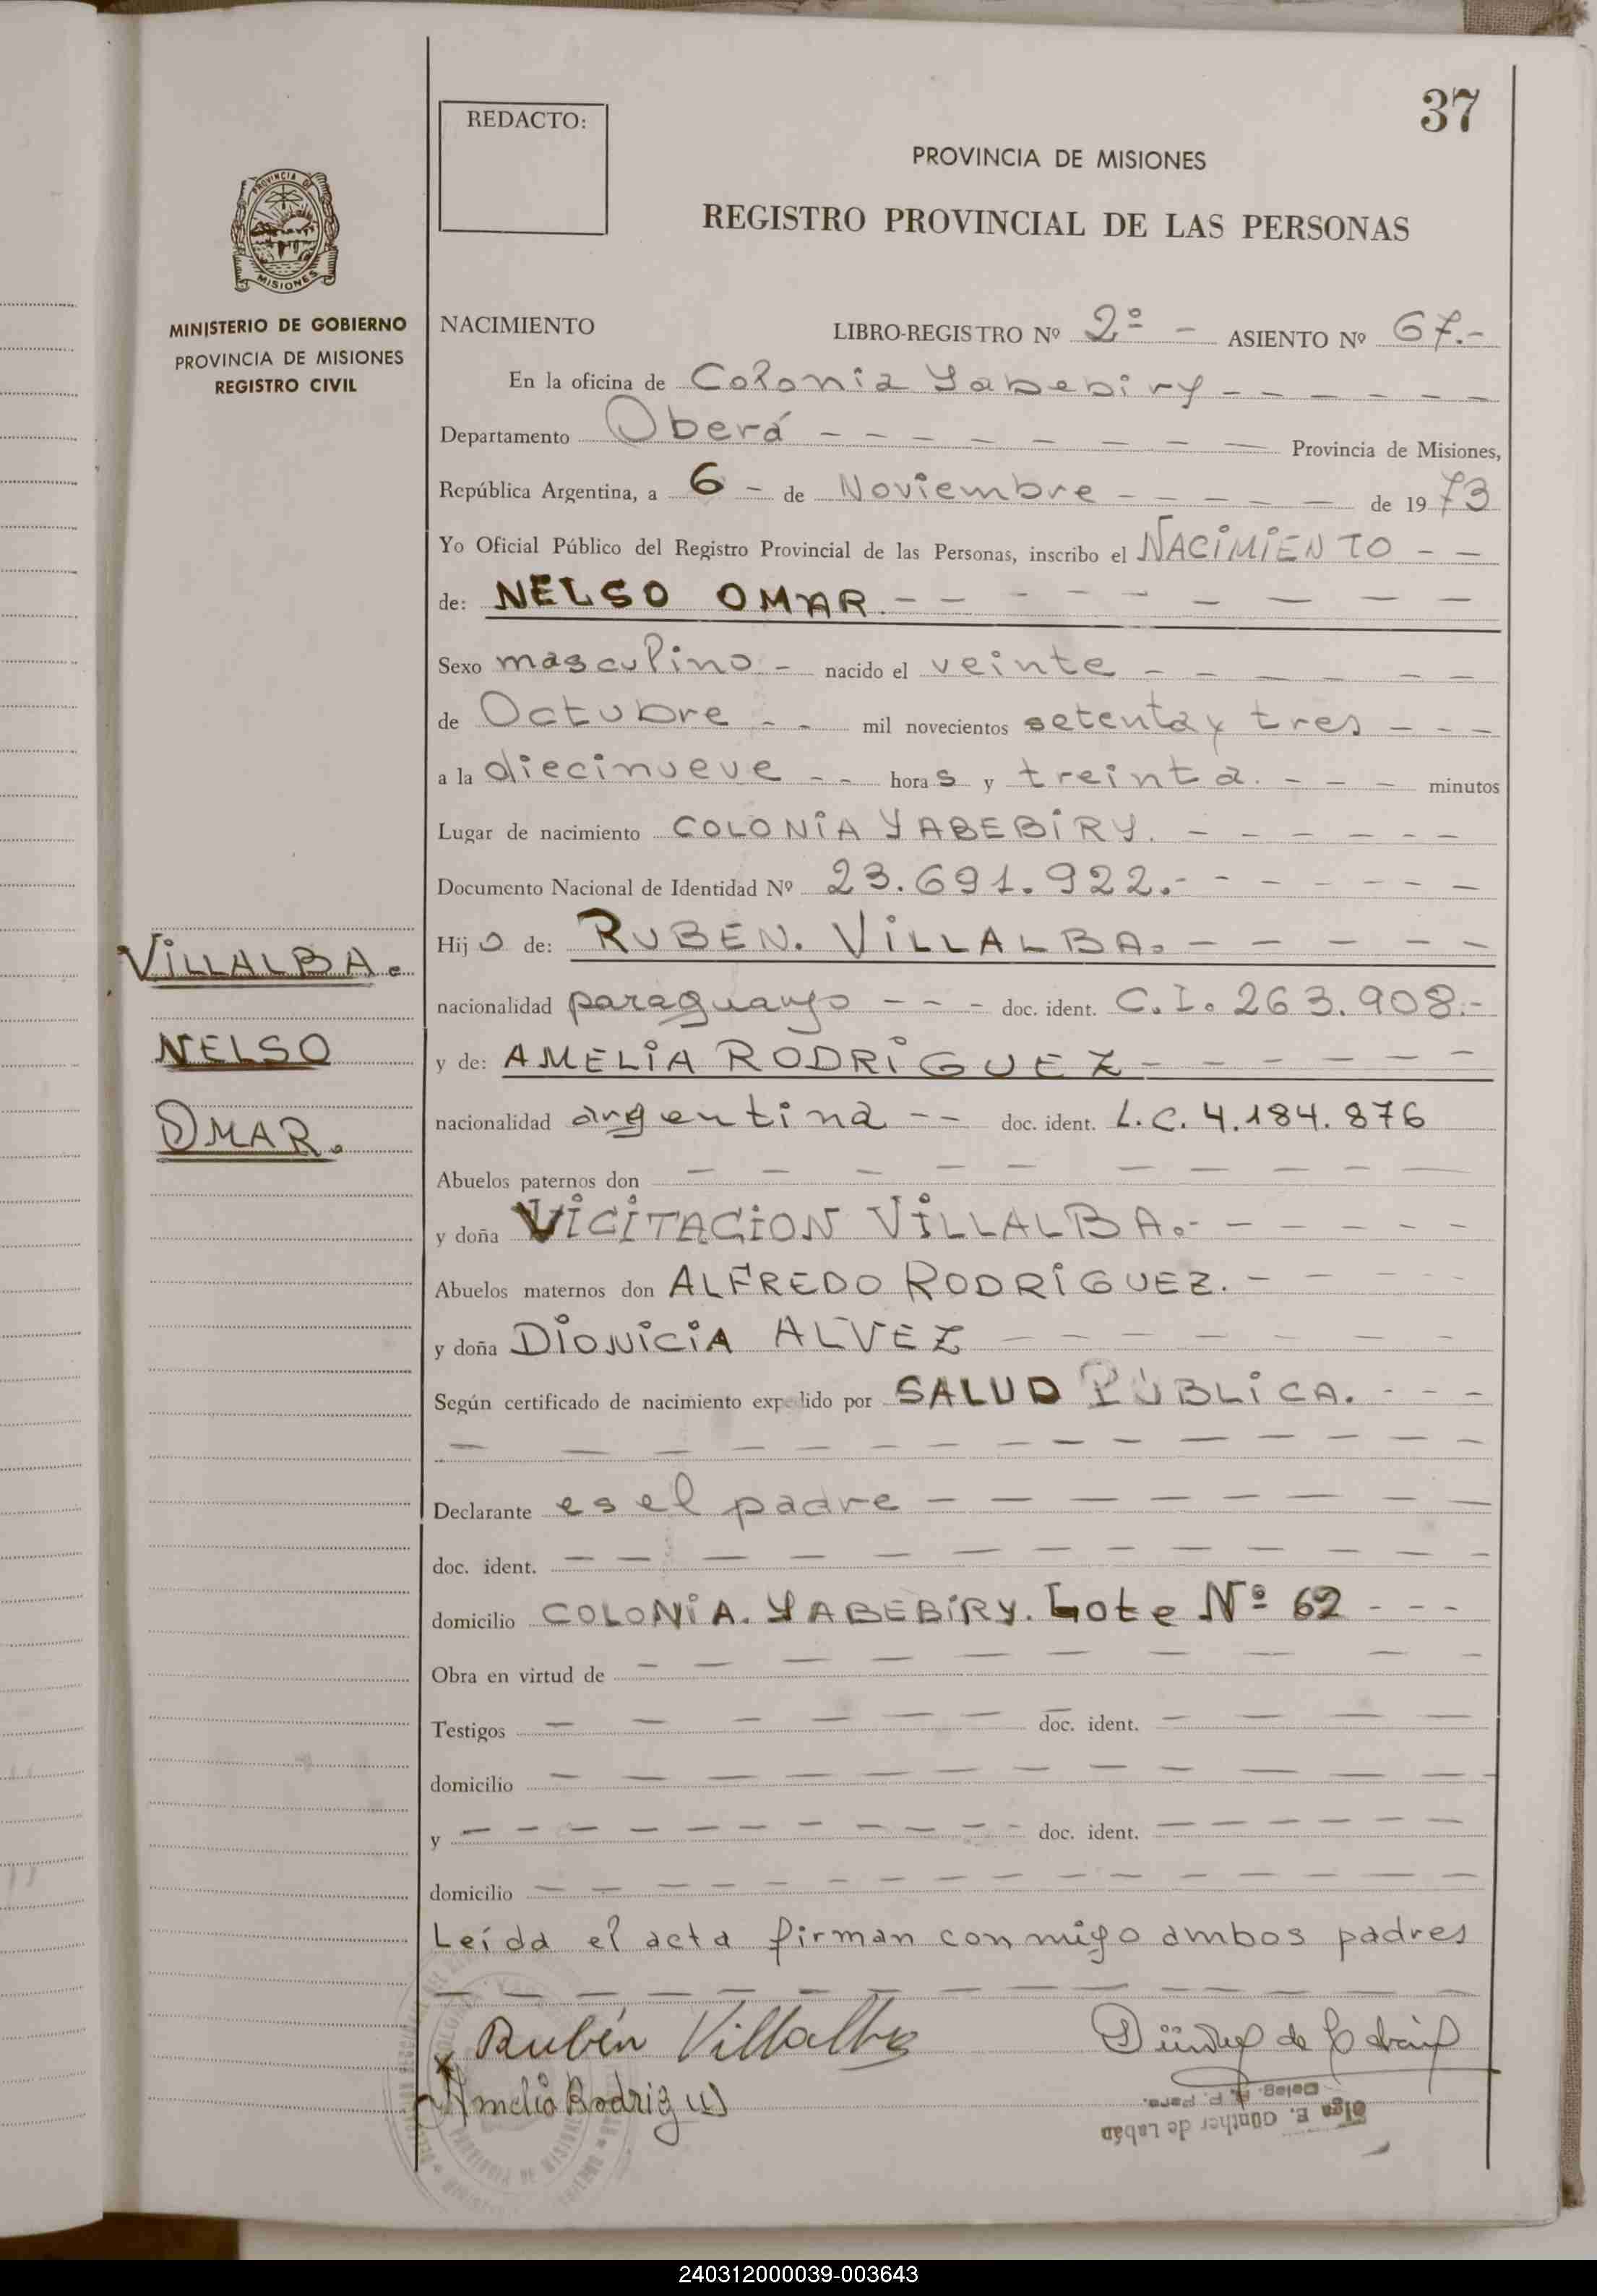 37
REDACTO:
PROVINCIA DE MISIONES
REGISTRO PROVINCIAL DE LAS PERSONAS
PROVINCIA DE
MISIONES
MINISTERIO DE GOBIERNO
PROVINCIA DE MISIONES
REGISTRO CIVIL
NACIMIENTO LIBRO-REGISTRO Nº 2º - ASIENTO Nº 67.-
En la oficina de Colonia Yabebiry - - - - - -
Departamento Oberá - - - - - - - - Provincia de Misiones,
República Argentina, a 6 - de Noviembre - - - - - de 1973
Yo Oficial Público del Registro Provincial de las Personas, inscribo el NACIMIENTO - -
de: NELSO OMAR. - - - - - - - - - -
Sexo masculino - nacido el veinte - - - - - - -
de Octubre - - mil novecientos setenta y tres - - -
a la diecinueve - - horas y treinta. - - - minutos
Lugar de nacimiento COLONIA YABEBIRY. - - - - - -
Documento Nacional de Identidad Nº 23.691.922.- - - - - - -
Hijo de: RUBEN. VILLALBA. - - - - -
VILLALBA.
nacionalidad paraguayo - - - doc. ident. C.I. 263.908.-
NELSO
y de: AMELIA RODRIGUEZ - - - - - -
OMAR.
nacionalidad argentina - - doc. ident. L.C. 4.184.876
Abuelos paternos don - - - - - - - - - -
y doña VICITACION VILLALBA.- - - - - -
Abuelos maternos don ALFREDO RODRIGUEZ. - - - - -
y doña DIONICIA ALVEZ - - - - - - - -
Según certificado de nacimiento expedido por SALUD PÚBLICA. - - -
- - - - - - - - - - - - - -
Declarante es el padre - - - - - - - -
doc. ident. - - - - - - - - - - - -
domicilio COLONIA. YABEBIRY. Lote Nº 62 - - -
Obra en virtud de - - - - - - - - - -
Testigos - - - - - - doc. ident. - - - -
domicilio - - - - - - - - - - - -
y - - - - - - - - - - - doc. ident. - - - - - -
domicilio - - - - - - - - - - - - -
Leída el acta firman conmigo ambos padres
- - - - - - - - - - - - -
Rubén Villalba
x Amelia Rodriguez
Deleg. R. P. Pers.
Olga E. Günther de Labán
240312000039-003643